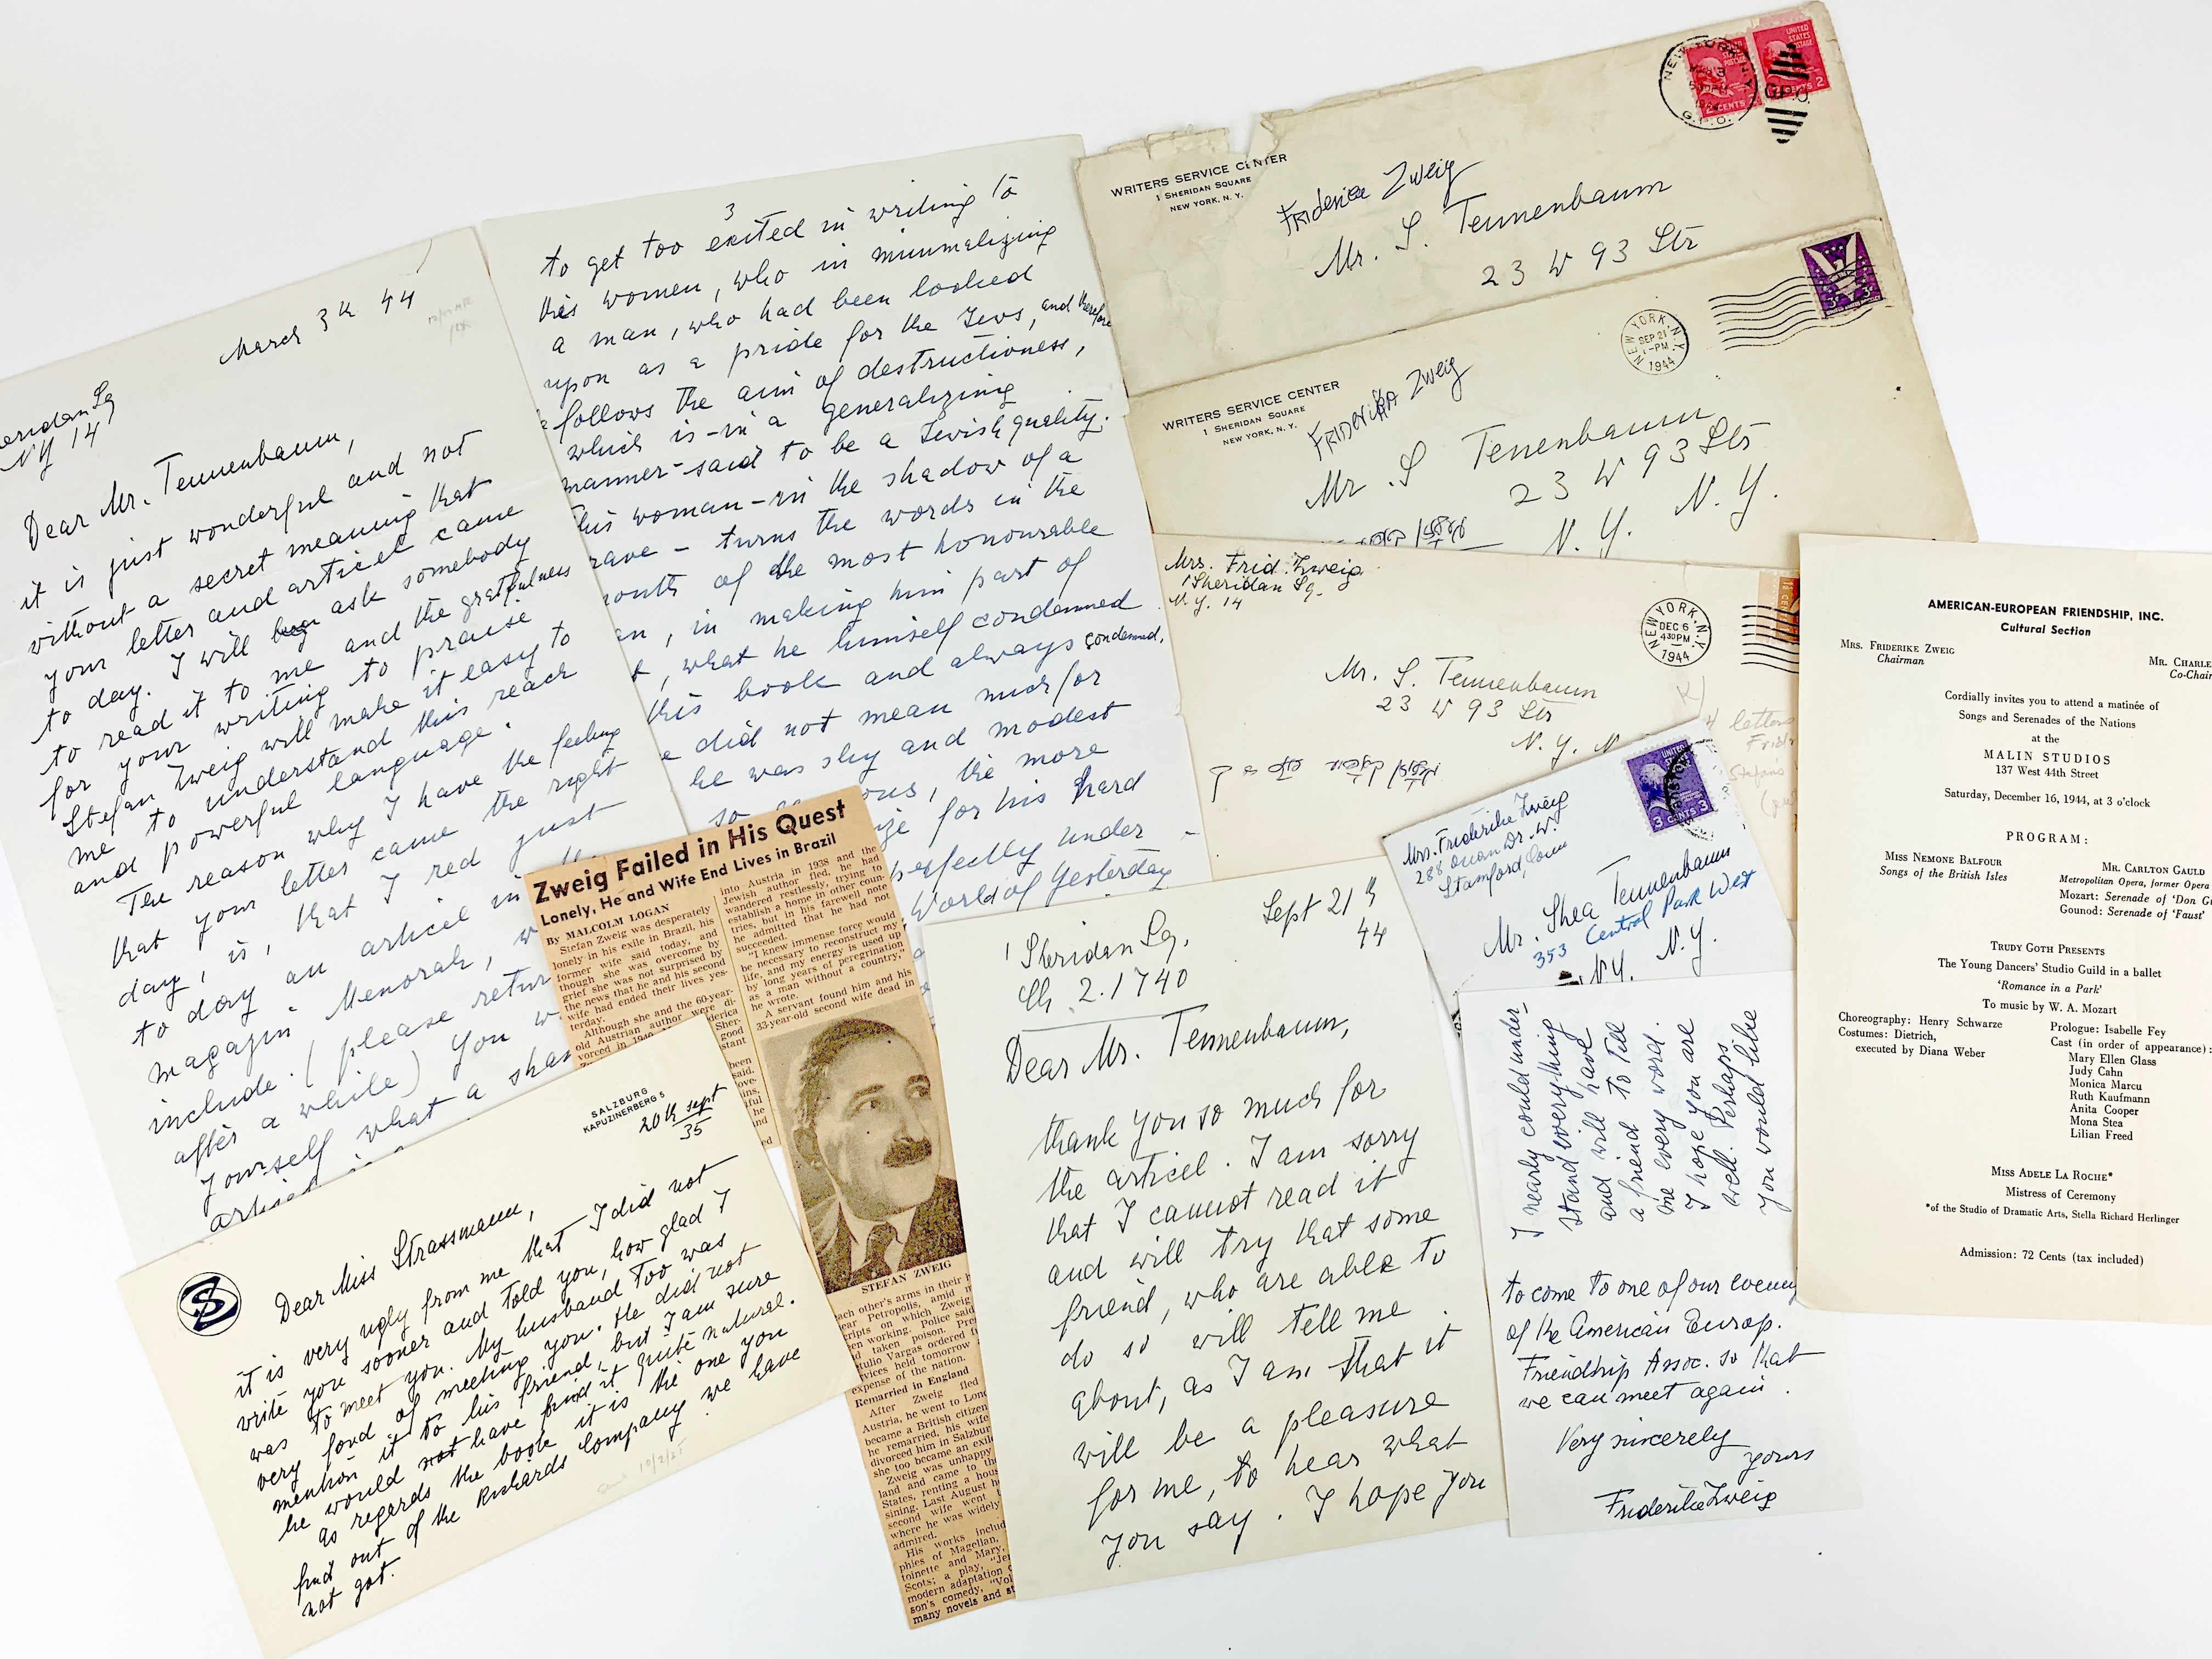 March 3th 44
NY 14
Dear Mr. Tennenbaum,
it is just wonderful and not
without a secret meaning that
your letter and articel came
to day. I will ask somebody
to read it to me and the gratfulness
for your writing to praise
Stefan Zweig will make it easy to
me to understand this reach
and powerful language.
The reason why I have the feeling
that your letter came the right
day, is, that I red just
to day an articel in
magazin Menorah,
include. (please retur
after a while) You w
yourself what a sha
3
to get too exited in writing to
this women, who in minimalizing
a man, who had been looked
upon as a pride for the Jews, and therefore
follows the aim of destructioness,
which is-in a generalizing
manner-said to be a Jewish quality.
his woman-in the shadow of a
rave - turns the words in the
outh of the most honourable
an, in making him part of
t, what he himself condemned
this book and always condemned.
e did not mean much for
he was shy and modest
so ous, the more
for his hard
perfectly under
World of Yesterday
WRITERS SERVICE CENTER
1 SHERIDAN SQUARE
NEW YORK, N. Y.
Friderica Zweig
Mr. S. Tennenbaum
23 W 93 Str
NEW YORK, N.Y.
G.P.O.
UNITED STATES POSTAGE
2 CENTS 2
WRITERS SERVICE CENTER
1 SHERIDAN SQUARE
NEW YORK, N. Y.
Friderika Zweig
Mr. S Tenenbaum
23 W 93 Str
N. Y. N. Y.
NEW YORK, N.Y.
SEP 21
-PM
1944
Mrs. Frid. Zweig
1 Sheridan Sq.
N. Y. 14
Mr. S. Tennenbaum
23 W 93 Str
N. Y. N
NEW YORK, N.Y.
DEC 6
430PM
1944
4 letters
Mrs. Friderike Zweig
Stamford, Conn
3 CENTS 3
Mr. Shea Tennenbaum
353 Central Park West
N. Y. N. Y.
Zweig Failed in His Quest
Lonely, He and Wife End Lives in Brazil
By MALCOLM LOGAN
Stefan Zweig was desperately
lonely in his exile in Brazil, his
former wife said today, and
though she was overcome by
grief she was not surprised by
the news that he and his second
wife had ended their lives yes-
terday.
Although she and the 60-year-
old Austrian author were di-
vorced in 1940
into Austria in 1938 and the
Jewish author fled, he had
wandered restlessly, trying to
establish a home in other coun-
tries, but in his farewell note
he admitted that he had not
succeeded.
"I knew immense force would
be necessary to reconstruct my
life, and my energy is used up
by long years of peregrination
as a man without a country,"
he wrote.
A servant found him and his
33-year-old second wife dead in
STEFAN ZWEIG
each other's arms in their h
ear Petropolis, amid m
ripts on which Zweig
en working. Police said
d taken poison. Pre
tulio Vargas ordered f
vices held tomorrow
expense of the nation.
Remarried in England
After Zweig fled
Austria, he went to Lond
became a British citizen
he remarried, his wife
divorced him in Salzbur
she too became an exil
Zweig was unhappy
land and came to th
States, renting a hous
sining. Last August h
second wife went
where he was widely
admired.
His works includ
phies of Magellan,
toinette and Mary,
Scots; a play, "Jer
modern adaptation o
son's comedy, "Vol
many novels and st
SALZBURG
KAPUZINERBERG 5
20th sept
35
SZ
Dear Miss Strassmann,
it is very ugly from me that I did not
write you sooner and told you, how glad I
was to meet you. My husband too was
very fond of meeting you. He did not
mention it to his friend, but I am sure
he would not have find it quite natural.
As regards the book it is the one you
find out of the Richards Company we have
not got.
Sept 21th
44
1 Sheridan Sq.
Ch 2.1740
Dear Mr. Tennenbaum,
thank you so much for
the articel. I am sorry
that I cannot read it
and will try that some
friend, who are able to
do so will tell me
about, as I am that it
will be a pleasure
for me, to hear what
you say. I hope you
I nearly could under-
stand everything
and will have
a friend to tell
me every word.
I hope you are
well. Perhaps
you would like
to come to one of our evening
of the American Europ.
Friendship Assoc. so that
we can meet again.
Very sincerely
yours
Friderike Zweig
AMERICAN-EUROPEAN FRIENDSHIP, INC.
Cultural Section
MRS. FRIDERIKE ZWEIG
Chairman
MR. CHARLE
Co-Chair
Cordially invites you to attend a matinée of
Songs and Serenades of the Nations
at the
MALIN STUDIOS
137 West 44th Street
Saturday, December 16, 1944, at 3 o'clock
PROGRAM:
MISS NEMONE BALFOUR
Songs of the British Isles
MR. CARLTON GAULD
Metropolitan Opera, former Opera
Mozart: Serenade of 'Don G
Gounod: Serenade of 'Faust'
TRUDY GOTH PRESENTS
The Young Dancers' Studio Guild in a ballet
'Romance in a Park'
To music by W. A. Mozart
Choreography: Henry Schwarze
Costumes: Dietrich,
executed by Diana Weber
Prologue: Isabelle Fey
Cast (in order of appearance):
Mary Ellen Glass
Judy Cahn
Monica Marcu
Ruth Kaufmann
Anita Cooper
Mona Stea
Lilian Freed
MISS ADELE LA ROCHE*
Mistress of Ceremony
*of the Studio of Dramatic Arts, Stella Richard Herlinger
Admission: 72 Cents (tax included)